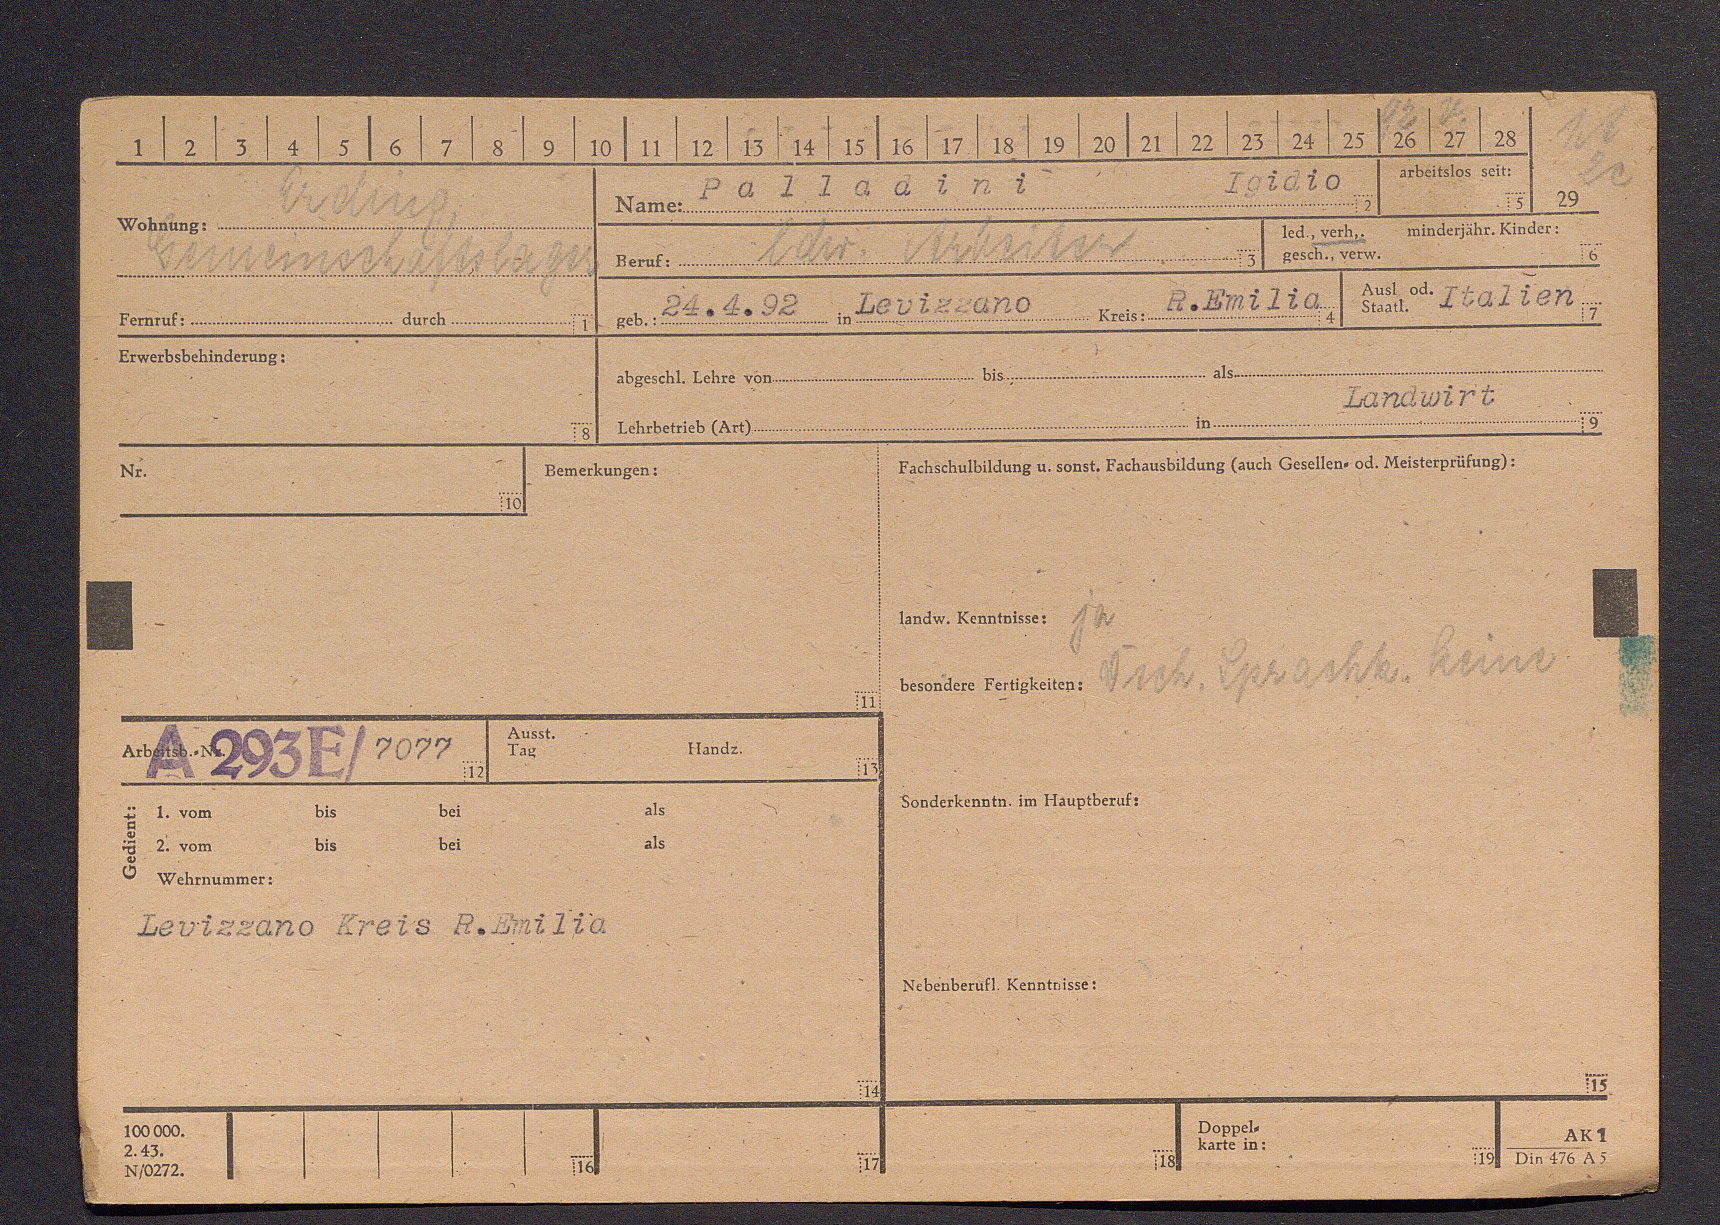 1 2 3 4 5 6 7 8 9 10 11 12 13 14 15 16 17 18 19 20 21 22 23 24 25 26 27 28
Wohnung: Erding,
Gemeinschaftslager
Fernruf: durch 1
Name: Palladini Igidio 2
arbeitslos seit: 5
29
Beruf: ldw. Arbeiter 3
led., verh., minderjähr. Kinder:
gesch., verw. 6
geb.: 24.4.92 in Levizzano Kreis: R.Emilia 4
Ausl. od. Staatl. Italien 7
Erwerbsbehinderung: 8
abgeschl. Lehre von bis als
Landwirt
Lehrbetrieb (Art) in 9
Nr. 10
Bemerkungen: 11
Fachschulbildung u. sonst. Fachausbildung (auch Gesellen- od. Meisterprüfung):
landw. Kenntnisse: ja
besondere Fertigkeiten: Dtsch. Sprachk. keine
Arbeitsb.-Nr. A 293E/ 7077 12
Ausst. Tag Handz. 13
Gedient:
1. vom bis bei als
2. vom bis bei als
Wehrnummer:
Levizzano Kreis R.Emilia
14
Sonderkenntn. im Hauptberuf:
Nebenberufl. Kenntnisse:
15
100 000.
2. 43.
N/0272.
16 17 18
Doppel-
karte in: 19
AK 1
Din 476 A 5